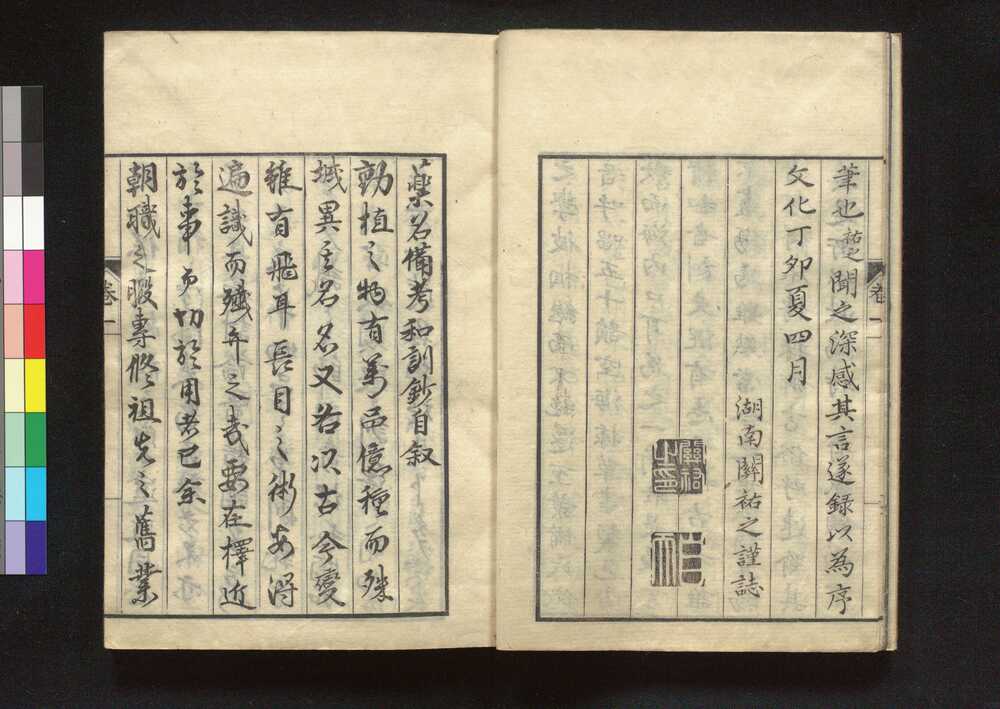 筆也祐之聞之深感其言遂録以為序
文化丁卯夏四月
湖南關祐之謹誌
關祐之印
卷一
藥名備考和訓鈔自叙
動植之物有萬品億種而殊
域異其名名又若次古今變
雖有飛耳長目之術安得
遍識而殫弁之哉要在擇近
於事而切於用者已余
朝職之暇專修祖先之舊業
卷一